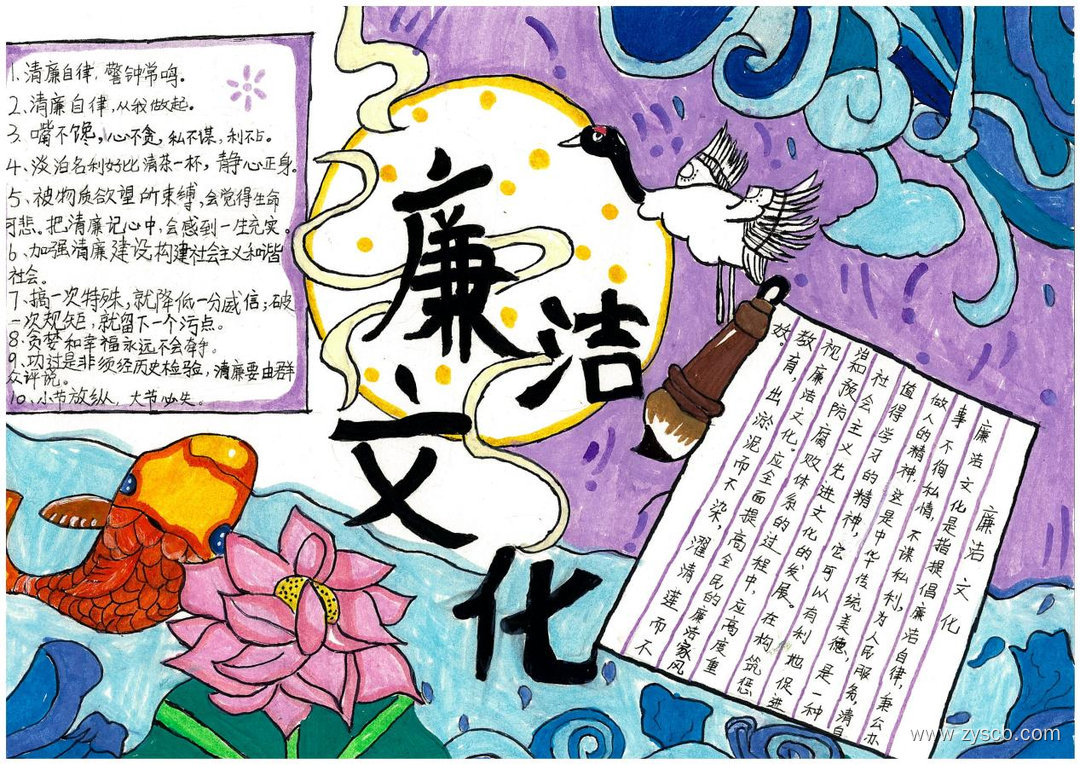 1、清廉自律,警钟常鸣。
2、清廉自律,从我做起。
3、嘴不馋,心不贪,私不谋,利不占。
4、淡泊名利好比清茶一杯,静心正身。
5、被物质欲望的束缚,会觉得生命
可悲。把清廉记心中,会感到一生充实。
6、加强清廉建设,构建社会主义和谐
社会。
7、搞一次特殊,就降低一分威信;破
一次规矩,就留下一个污点。
8、贪婪和幸福永远不会牵手。
9、功过是非须经历史检验,清廉要由群
众评说。
10、小节放纵,大节必失。
廉洁
文化
廉洁 文化
廉洁文化是指提倡廉洁自律,秉公办
事,不徇私情,不谋私利,为人民服务,清白
做人的精神,这是中华传统美德,是一种
值得学习的精神,它可以有利地促进
社会主义先进文化的发展。在构筑惩
治和预防腐败体系的过程中,应高度重
视廉洁文化。应全面提高全民的廉洁家风
教育,出淤泥而不染,濯清莲而不
妖。
www.zyscb.com